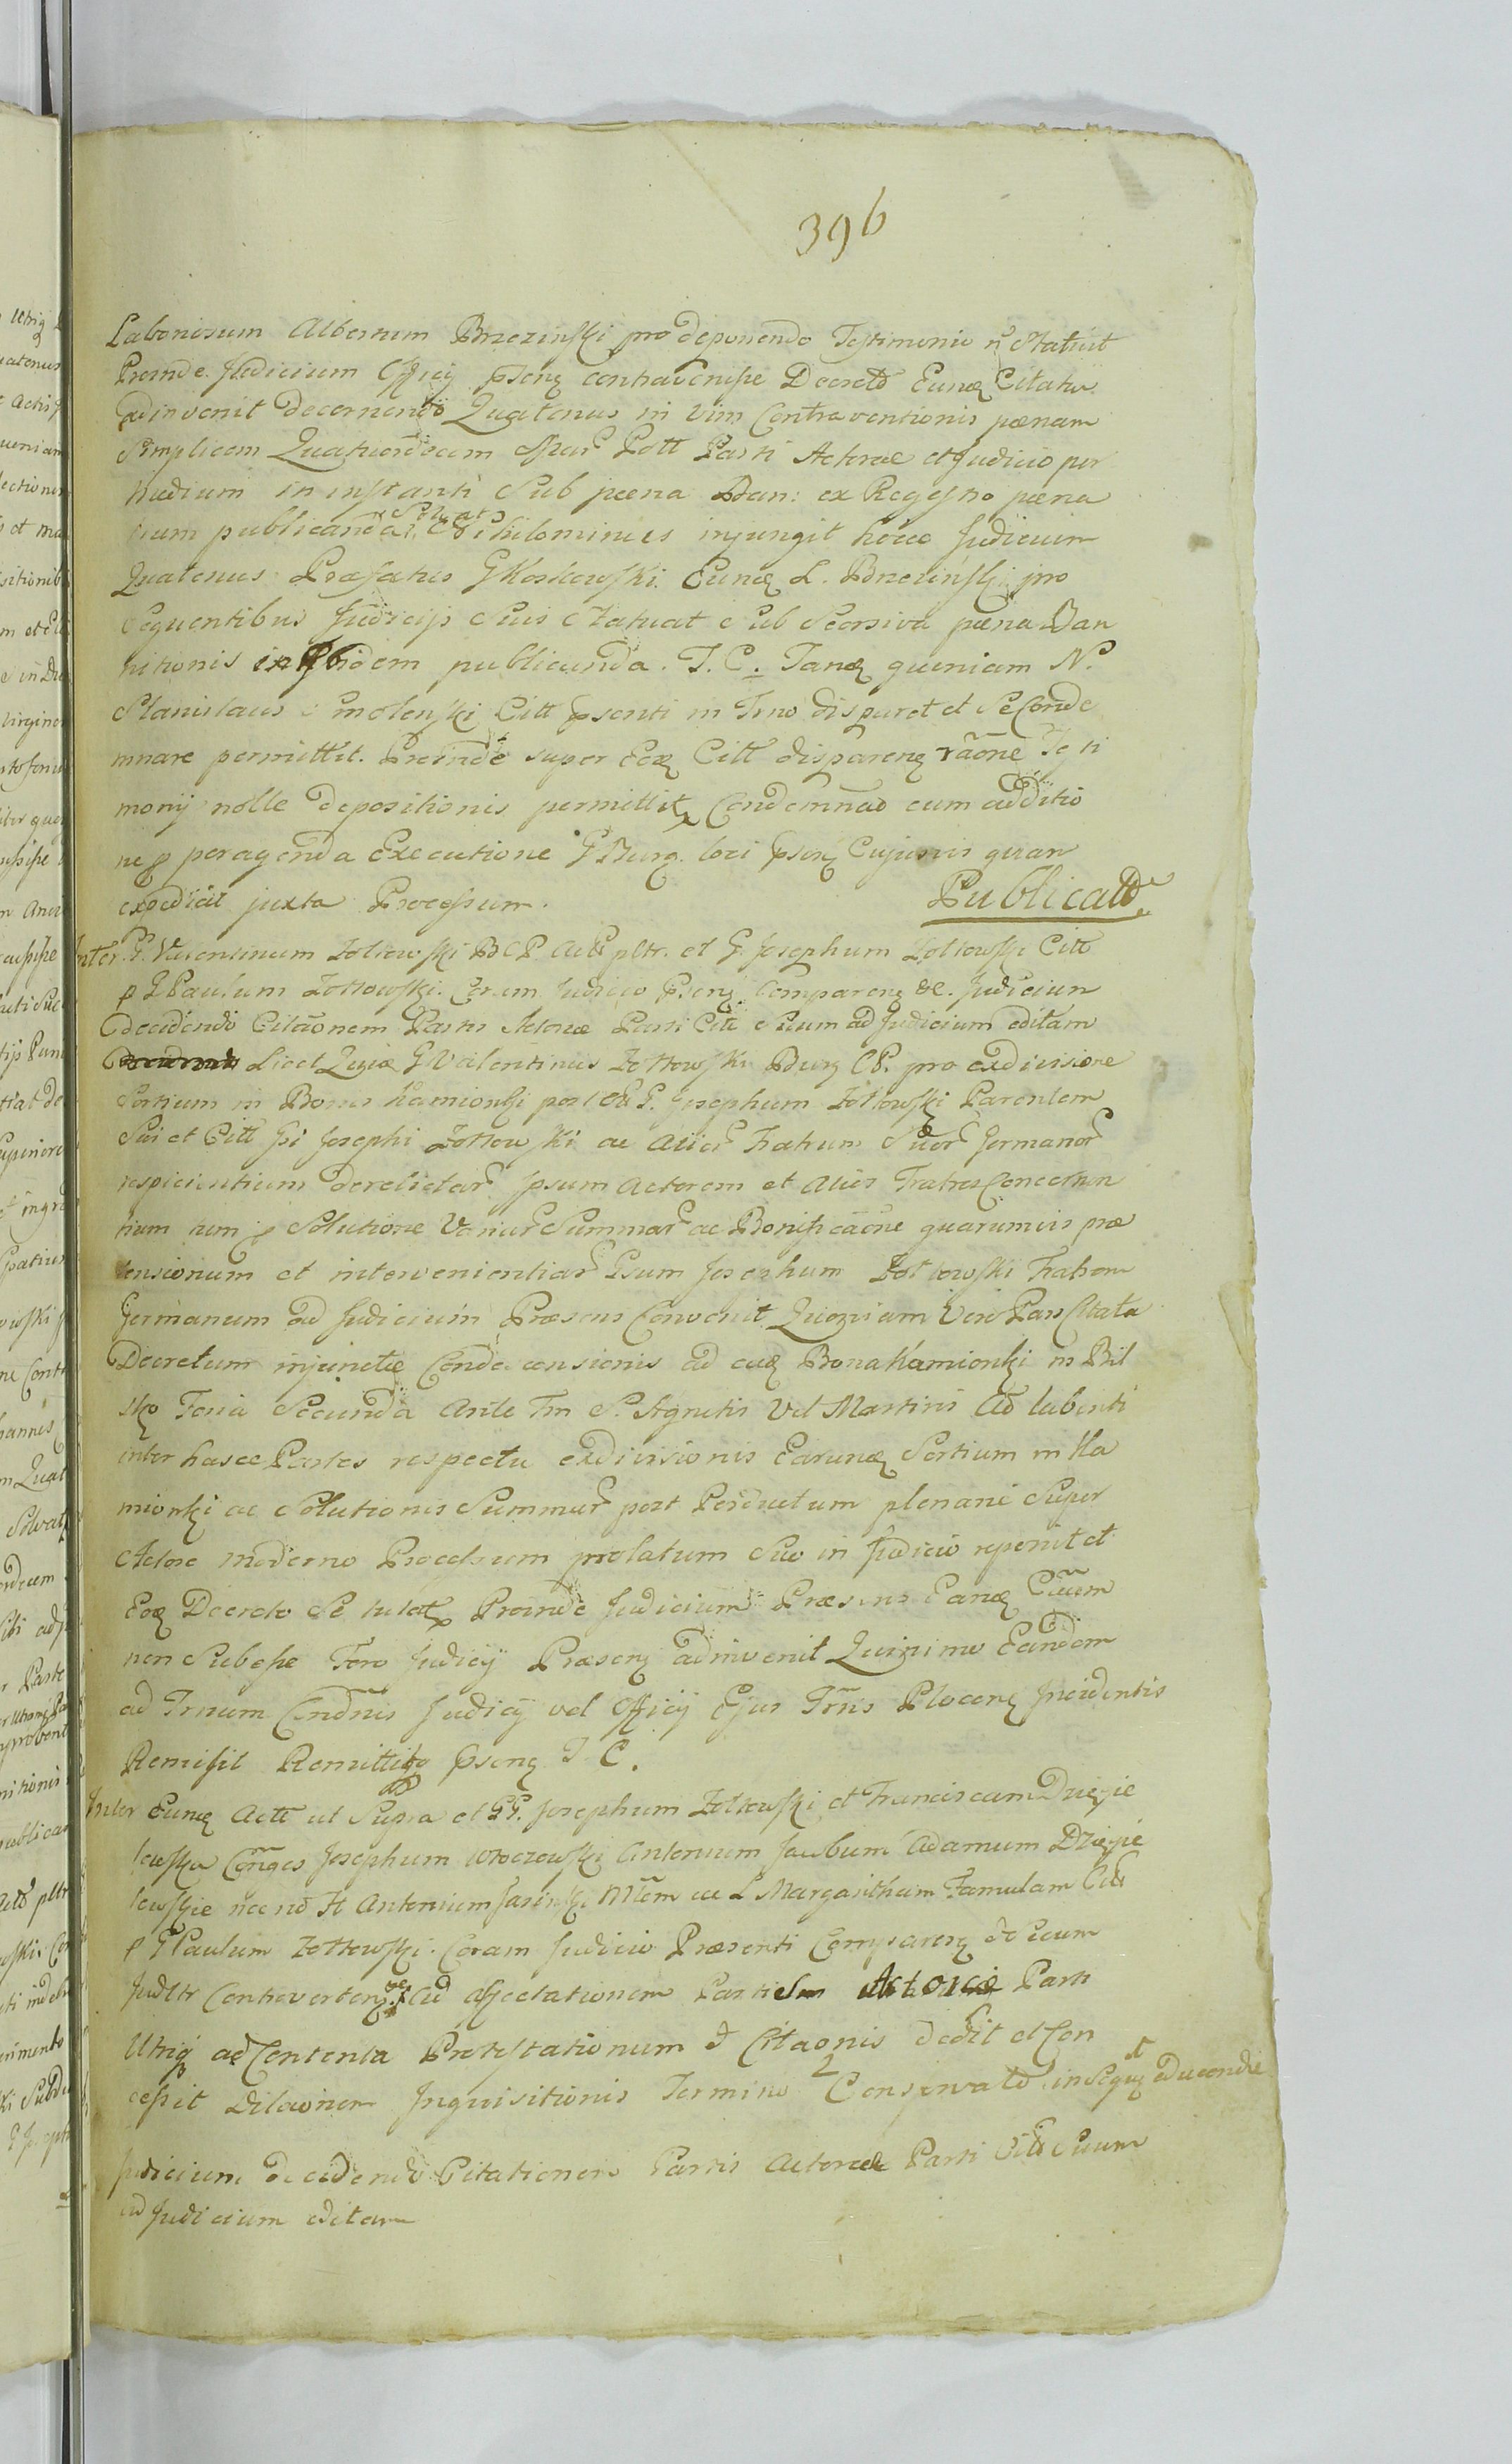 396
Laboriosum Albertum Brzezinski pro deponendo Testimonio n Statuit
Proinde Judicium Officij psenq contravenisse Decreto Eunq Citatu
adinvenit decernendo Quatenus in vim Contraventionis pœnam
Simplicem Quatuordecim Mar Poll Parti Actoreæ et Judicio per
medium in instanti Sub pœna Ban: ex Regestro pœna
rum publicanda Solvat Nihilominus injungit hocce Judicium
Quatenus Præfatus G Koskowski Eunq L. Brzezinski pro
Sequentibus Judicijs Suis Statuat Sub Seorsiva pœna Ban
nitionis ibidem publicanda. J. C. Tanq quoniam N.
Stanislaus Smolenski Citt psenti in Trno disparet et Se Conde
mnare permittit. Proinde super Eoq Citt disparenq raõne Testi
monij nolle depositionis permittit Condemnao cum additio
ne p peragenda Executione G Burg. loci psenq Cujusvis quan
expediat juxta Processum. Publicatt
Inter G. Valentinum Zoltowski BCP Actt pltr. et G. Josephum Zoltowski Citt
p G Paulum Zoltowski. Coram Judicio Psenq Comparenq &c. Judicium
decidendo Citaõnem Partis Actoreæ Parti Citt Suum ad Judicium editam
Licet Quia G Valentinus Zoltowski Burg CP. pro exdivisione
Sortium in Bonis Kamionki post G. Josephum Zoltowski Parentem
Sui et Citt Gi Josephi Zoltowski ac alior Fratrum Suor Germanor
respicientium derelictar ipsum Actorem et Alios Fratres Concernen
tium tum p Solutione Variar Summar ac Bonificaõne quarumvis præ
tensionum et intervenientiar Gsum Josephum Zoltowski Fratrem
Germanum ad Judicium Præsens Convenit Quoniam Vero Pars Citata
Decretum injunctæ Condescensionis ad eaq Bona Kamionki in Bil
sko Feria Secunda Ante Fm S. Agnetis Vel Martini AD labenti
inter hasce Partes respectu exdivisionis Earunq Sortium in Ka
mionki ac Solutionis Summar post Perductum plenarie Super
Actore moderno Processum prolatum Suo in Judicio reponit et
Eoq Decreto Se tutat Proinde Judicium Præsens Eanq Cãum
non Subesse Foro Judicij Præsenq adinvenit Quinimo Eandem
ad Trnum Cõndnis Judicij vel Officij Ejus Trnis Plocenq Incidentis
Remisit Remittitq psenq J. C.
Inter Eunq Actt ut Supra et GG. Josephum Zoltowski et Franciscam Dzięgie
lewska Conges Josephum Wroczewski Antonium Jacobum Adamum Dzięgie
lewskie nec no H Antonium Jasinski Mlem ac L Margaritham Famulam Citt
p G Paulum Zoltowski. Coram Judicio Præsenti Comparenq & Secum
Judltr Controvertenq. Ad affectationem Partis Actoreæ Parti
Utriq ad Contenta Protestationum & Citaonis dedit et Con
cessit Dilaõnem Inquisitionis Termino 2 Conservato in Sequq educendae
Judicium decidendo Citationem Partis Actoreæ Parti Citt Suum
ad Judicium editam